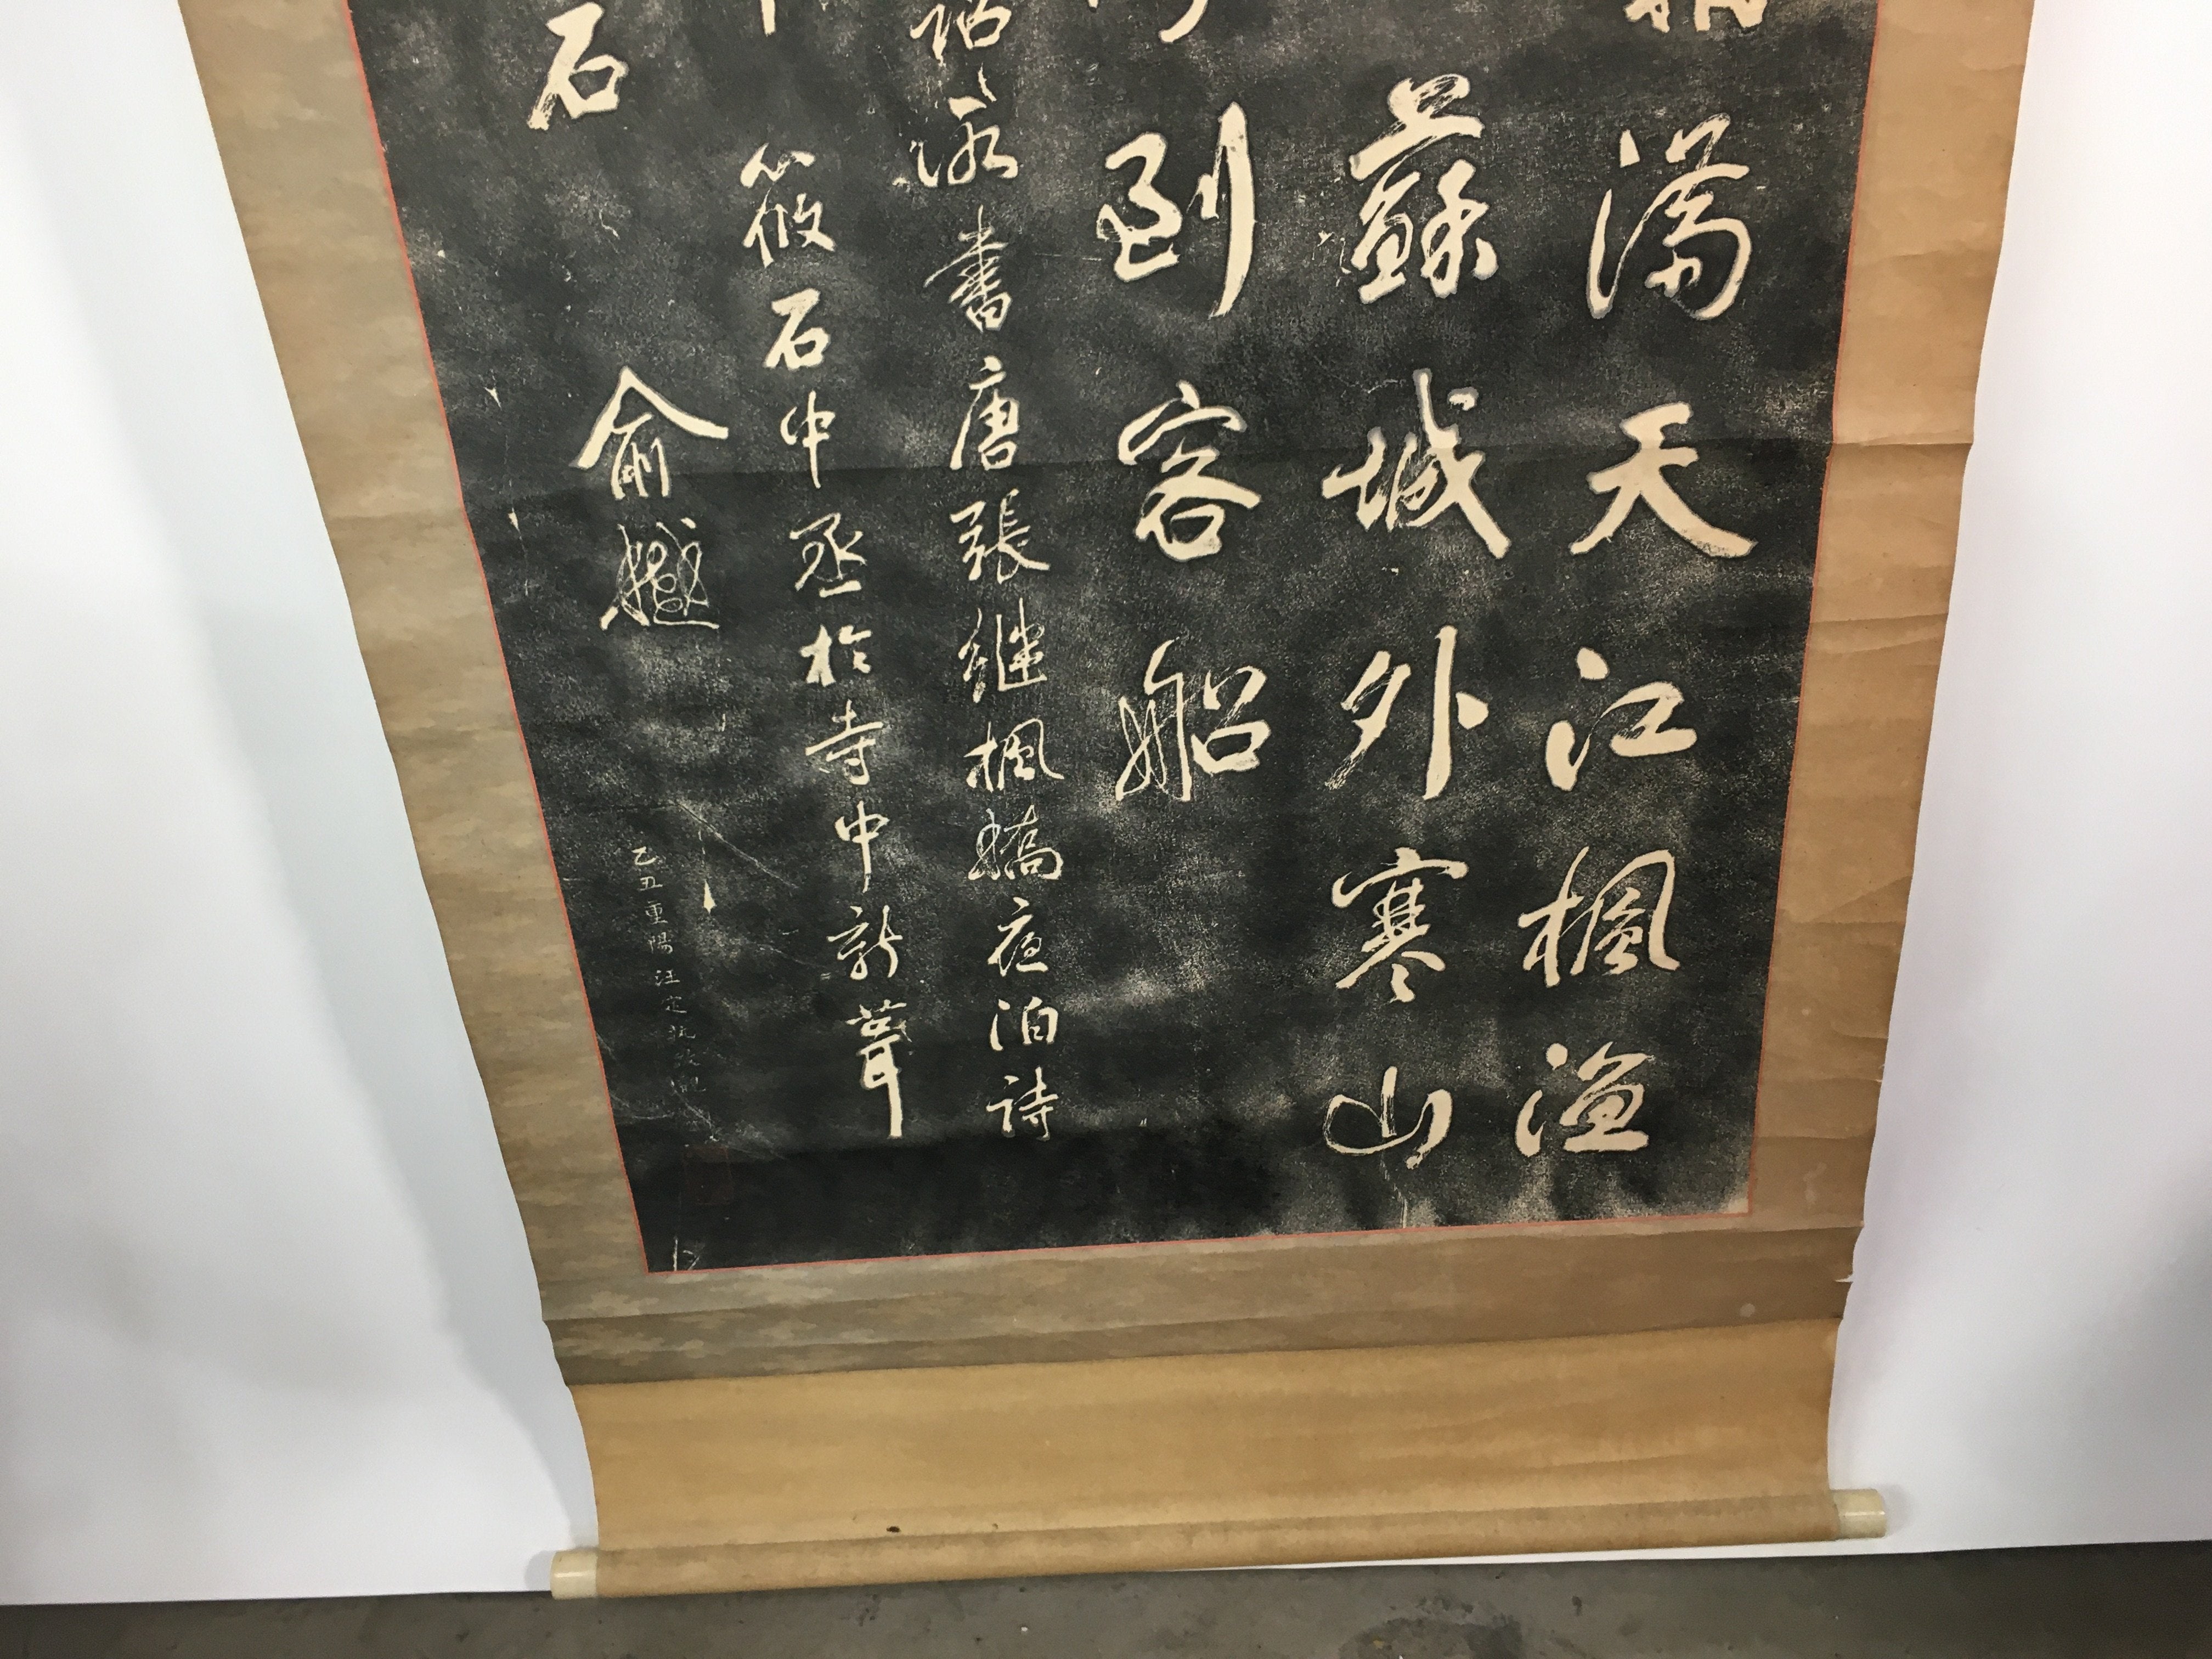 滿天江楓漁
蘇城外寒山
到客船
詠書唐張继楓橋夜泊詩
筱石中丞於寺中新葺
石
俞樾
乙丑重陽汪定